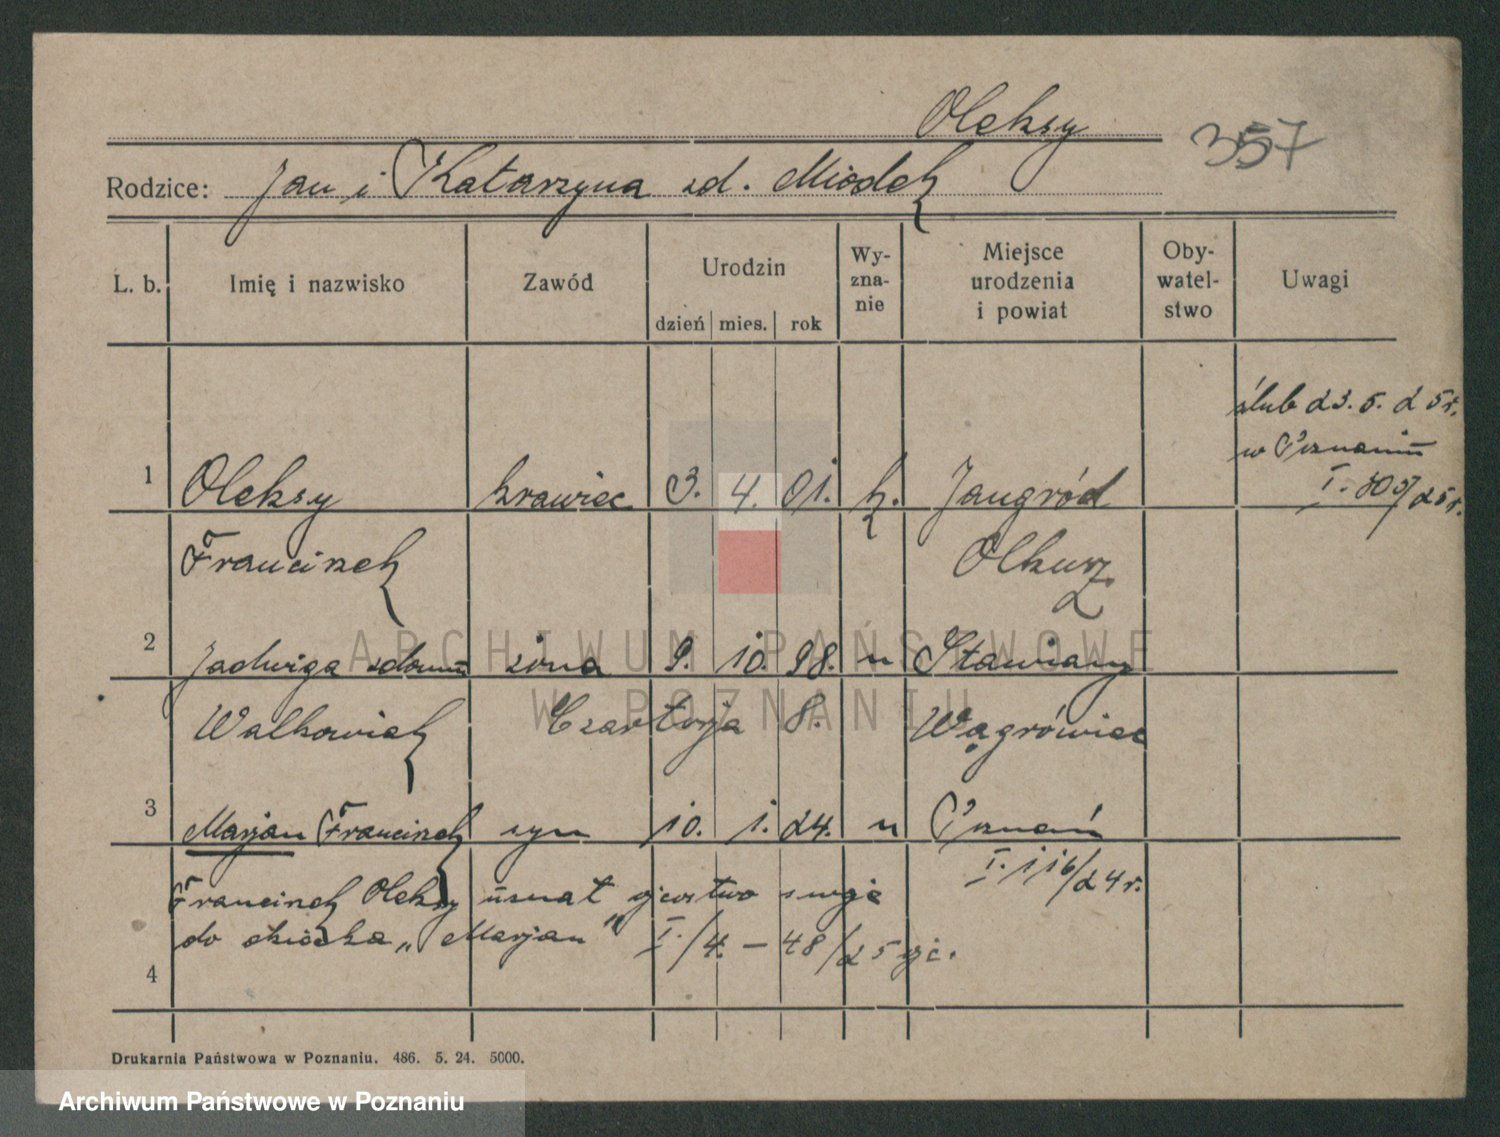 Oleksy
357
Rodzice: Jan i Katarzyna zd. Miodek
L. b. Imię i nazwisko Zawód Urodzin dzień mies. rok Wy-zna-nie Miejsce urodzenia i powiat Oby-watel-stwo Uwagi
ślub 23. 5. 25 r.
w Poznaniu
1 Oleksy krawiec 3. 4. 01. k. Jangród I. 303/25 r.
Franciszek Olkusz
2 Jadwiga zdomu żona 9. 10. 98. " Stawiany
Walkowiak Czartorja 8. Wągrówiec
3 Marjan Franciszek syn 10. 1. 24. " Poznań
I. 116/24 r.
Franciszek Oleksy uznał ojcostwo swoje
do dziecka „Marjan" I./4. – 48/25
4
Drukarnia Państwowa w Poznaniu. 486. 5. 24. 5000.
ARCHIWUM PAŃSTWOWE
W POZNANIU
Archiwum Państwowe w Poznaniu